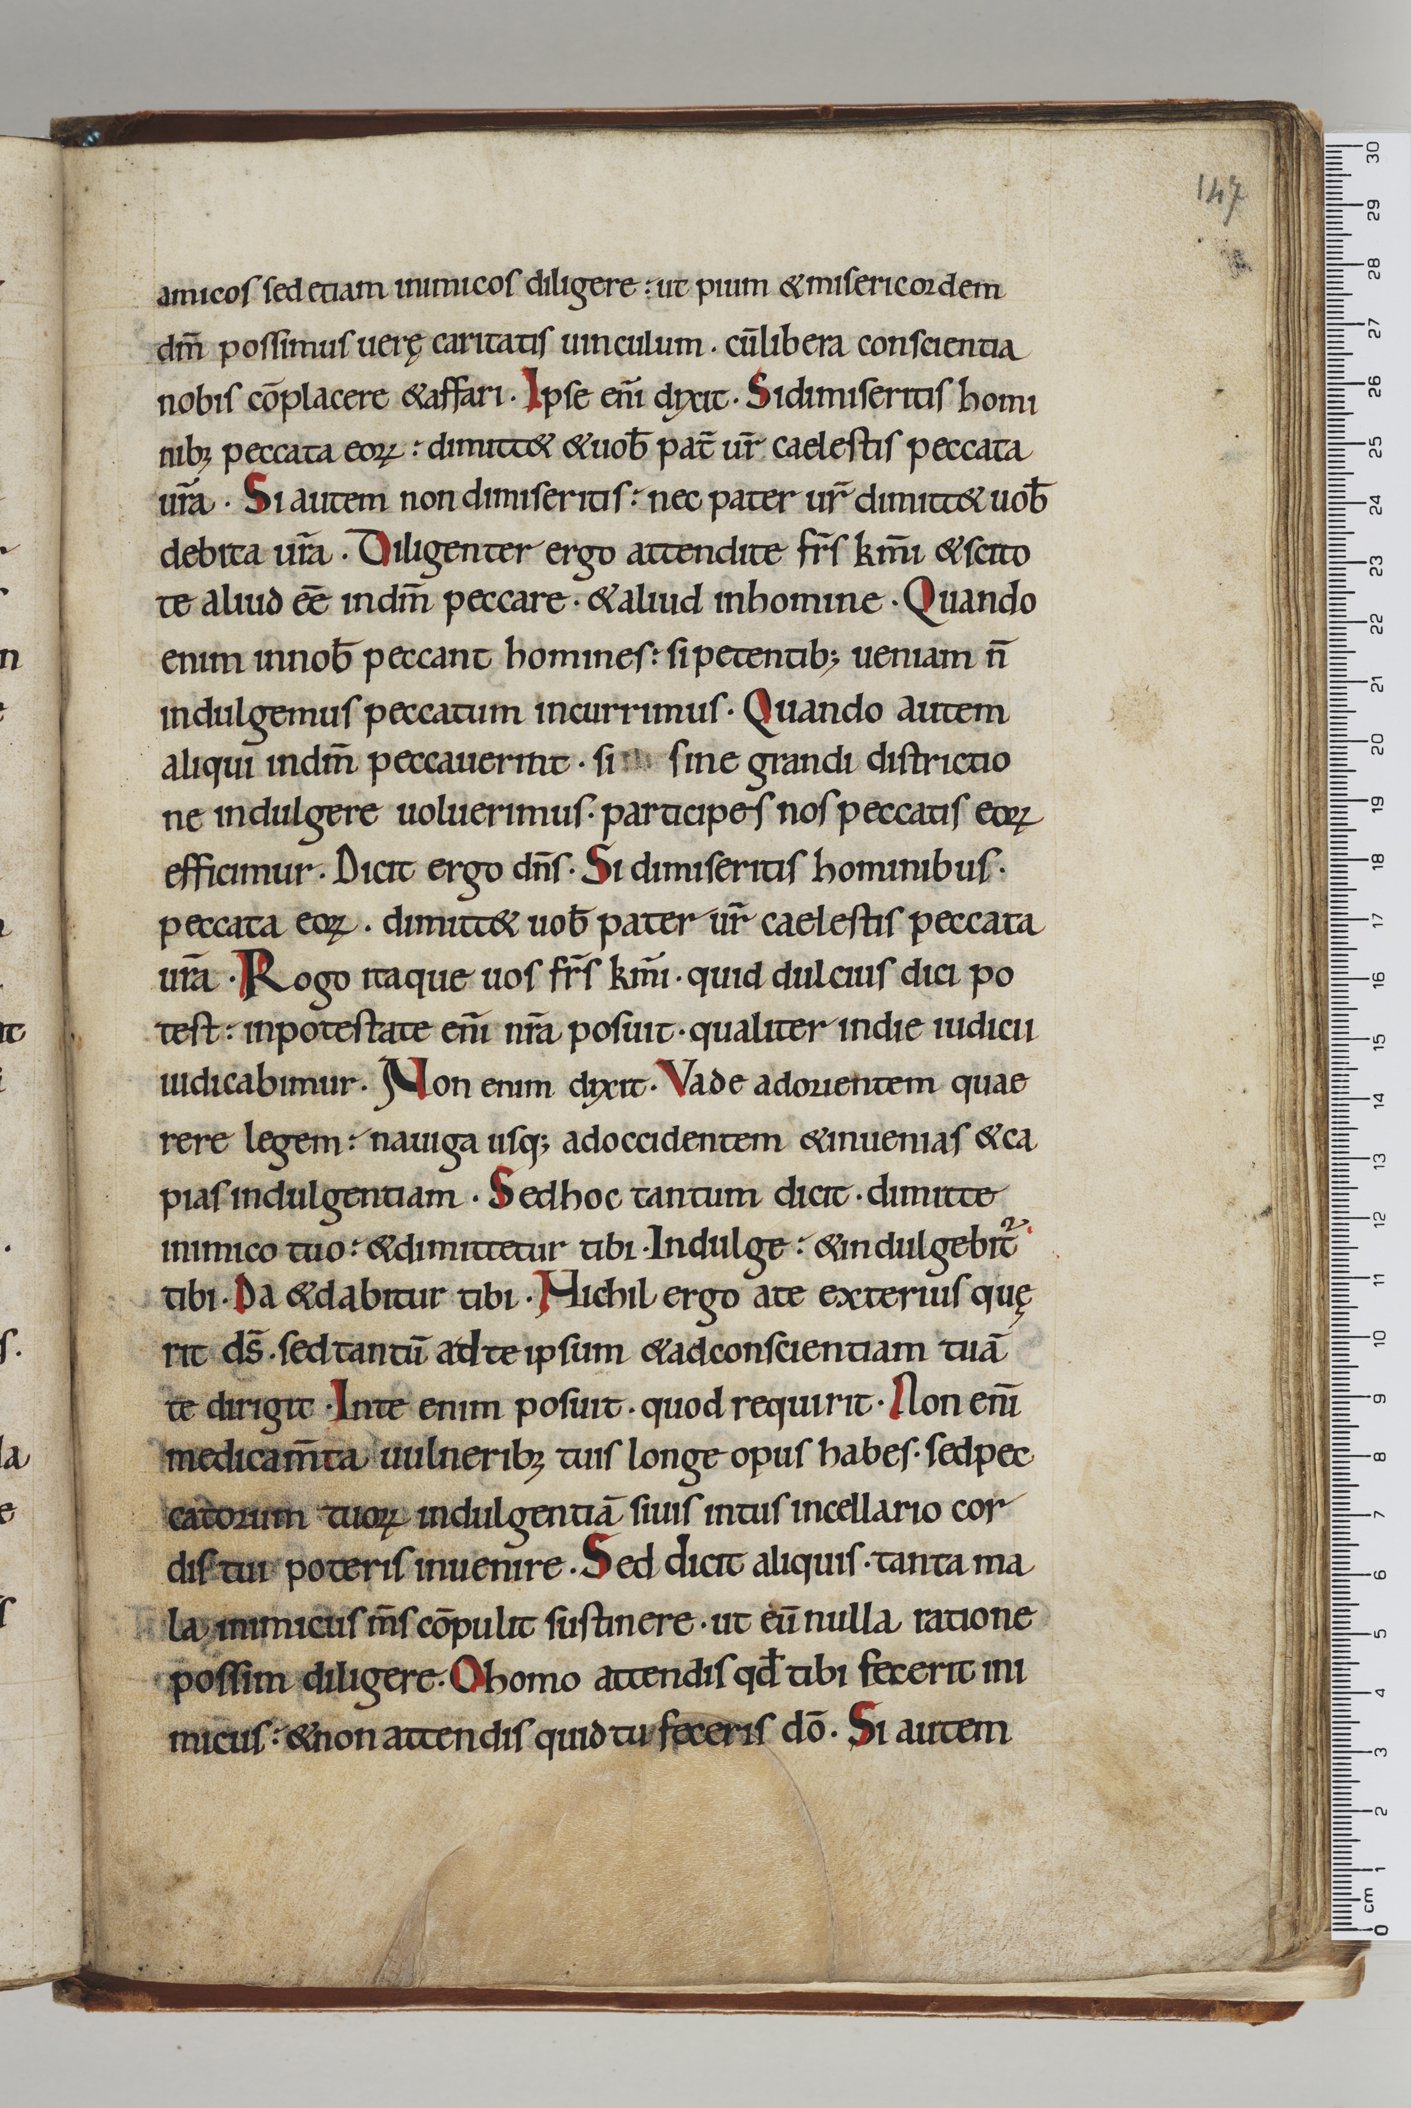 147
amicos sed etiam inimicos diligere: ut pium & misericordem
dm̄ possimus uerę caritatis uinculum. cū libera conscientia
nobis cōplacere & affari. Ipse enī dixit. Si dimiseritis homi
nib; peccata eoꝝ: dimitt& & uob̄ pat̄ ur̄ caelestis peccata
ur̄a. Si autem non dimiseritis: nec pater ur̄ dimitt& uob̄
debita ur̄a. Diligenter ergo attendite fr̄s km̄i & scito
te aliud eē in dm̄ peccare. & aliud in homine. Quando
enim in nob̄ peccant homines: si petentib; ueniam n̄
indulgemus peccatum incurrimus. Quando autem
aliqui in dm̄ peccauerint. si sine grandi districtio
ne indulgere uoluerimus. participes nos peccatis eoꝝ
efficimur. Dicit ergo dn̄s. Si dimiseritis hominibus.
peccata eoꝝ. dimitt& uob̄ pater ur̄ caelestis peccata
ur̄a. Rogo itaque uos fr̄s km̄i. quid dulcius dici po
test: in potestate enī nr̄a posuit. qualiter in die iudicii
iudicabimur. Non enim dixit. Vade ad orientem quae
rere legem: nauiga usq; ad occidentem & inuenias & ca
pias indulgentiam. Sed hoc tantum dicit. dimitte
inimico tuo: & dimittetur tibi. Indulge: & indulgebit᷑
tibi. Da & dabitur tibi. Nichil ergo a te exterius quę
rit ds̄. sed tantū ad te ipsum & ad conscientiam tuā
te dirigit. In te enim posuit. quod requirit. Non enī
medicam̄ta uulnerib; tuis longe opus habes. sed pec
catorum tuoꝝ indulgentiā si uis intus in cellario cor
dis tui poteris inuenire. Sed dicit aliquis. tanta ma
la inimicus m̄s cōpulit sustinere. ut eū nulla ratione
possim diligere. O homo attendis qd̄ tibi fecerit ini
micus: & non attendis quid tu feceris dō. Si autem
30
29
28
27
26
25
24
23
22
21
20
19
18
17
16
15
14
13
12
11
10
9
8
7
6
5
4
3
2
1
cm
0